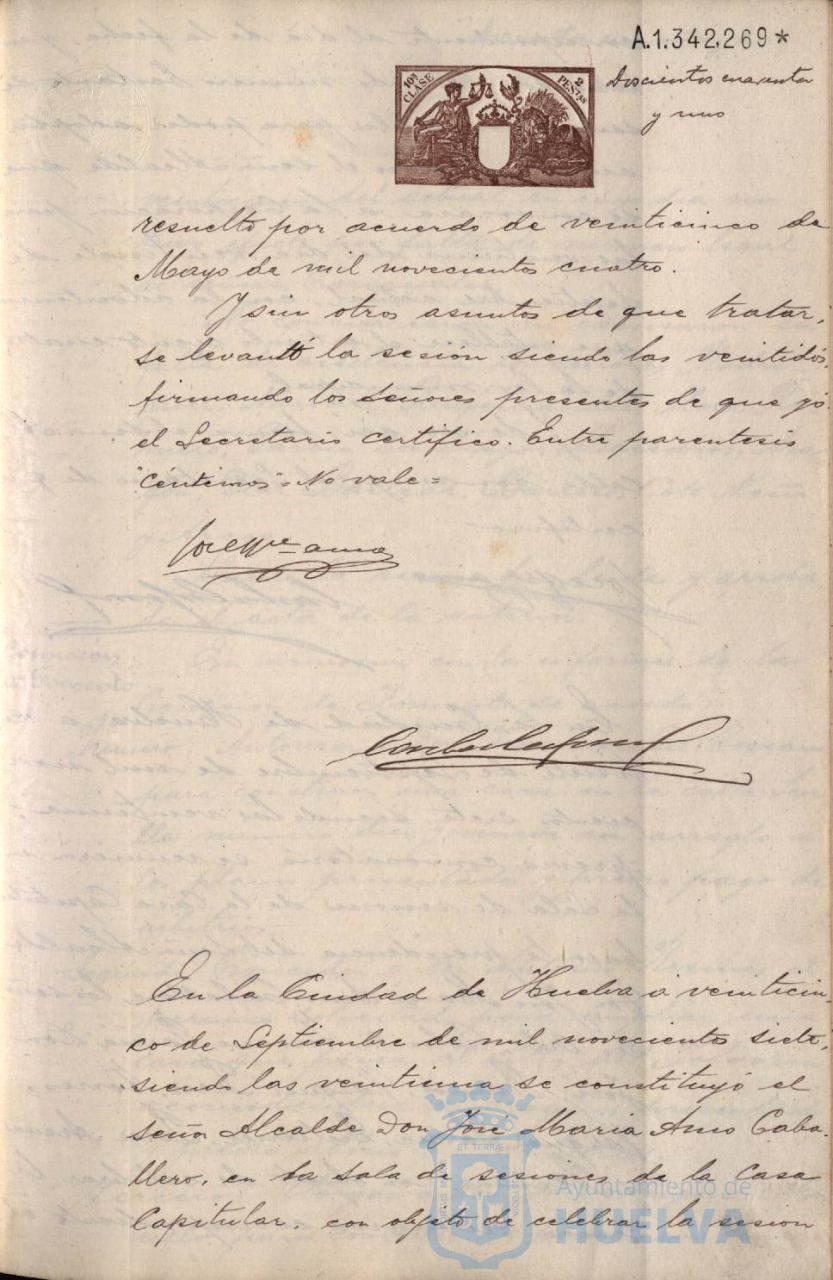 A.1.342.269*
10ª CLASE
2 PESTAS
Doscientos cuarenta
y uno
resuelto por acuerdo de veinticinco de
Mayo de mil novecientos cuatro.
Y sin otros asuntos de que tratar,
se levantó la sesión siendo las veintidós,
firmando los Señores presentes de que yó
el Secretario certifico. Entre parentesis
"céntimos" = No vale =
En la Ciudad de Huelva á veinticin-
co de Septiembre de mil novecientos siete,
siendo las veintiuna se constituyó el
Señor Alcalde Don José Maria Amo Caba-
llero, en la Sala de sesiones de la Casa
Capitular, con objeto de celebrar la sesion
ET TERRÆ
Ayuntamiento de
HUELVA